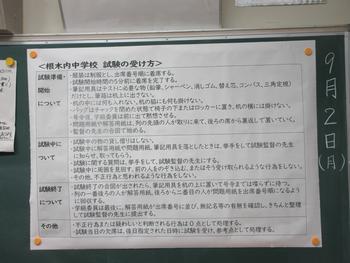 <根木内中学校 試験の受け方>
試験準備・開始について
・服装は制服とし、出席番号順に着席する。
・試験開始時間の5分前に着席を完了する。
・筆記用具はテストに必要な物(鉛筆、シャーペン、消しゴム、替え芯、コンパス、三角定規)
だけとし、筆箱は机上に出さない。
・机の中には何も入れない。机の脇にも何も掛けない。
・バッグはチャックを閉めた状態で椅子の下またはロッカーに置き、机の横には掛けない。
・号令後、学級委員は前に出て黙想させる。
・問題用紙や解答用紙は、列の先頭の人が取りに来て、後ろの席から裏返して置いていく。
・監督の先生の合図で始める。
試験中について
・試験中の物の貸し借りはしない。
・試験中に問題用紙や解答用紙、筆記用具を落としたときは、挙手をして試験監督の先生
に知らせ、取ってもらう。
・試験に関する質問は、挙手をして、試験監督の先生にする。
・試験中に周囲を見回す、前の人をのぞき込む、またはそう受け取られるような行為をしない。
・その他、不正行為と思われるような行為をしない。
試験終了について
・試験終了の合図が出されたら、筆記用具を机の上に置いて号令までは喋らずに待つ。
・列の一番後ろの人が解答用紙を、後ろから二番目の人が問題用紙を出席番号順になるよう
に回収する。
・学級委員は最後に、解答用紙が出席番号に並び、無記名等の有無を確認し、きちんと整理
して試験監督の先生に提出する。
その他
・不正行為または疑わしいと判断される行為は0点として処理する。
・試験当日の欠席は、後日指定された日時に試験を受け、参考点として処理する。
9月2日(月)